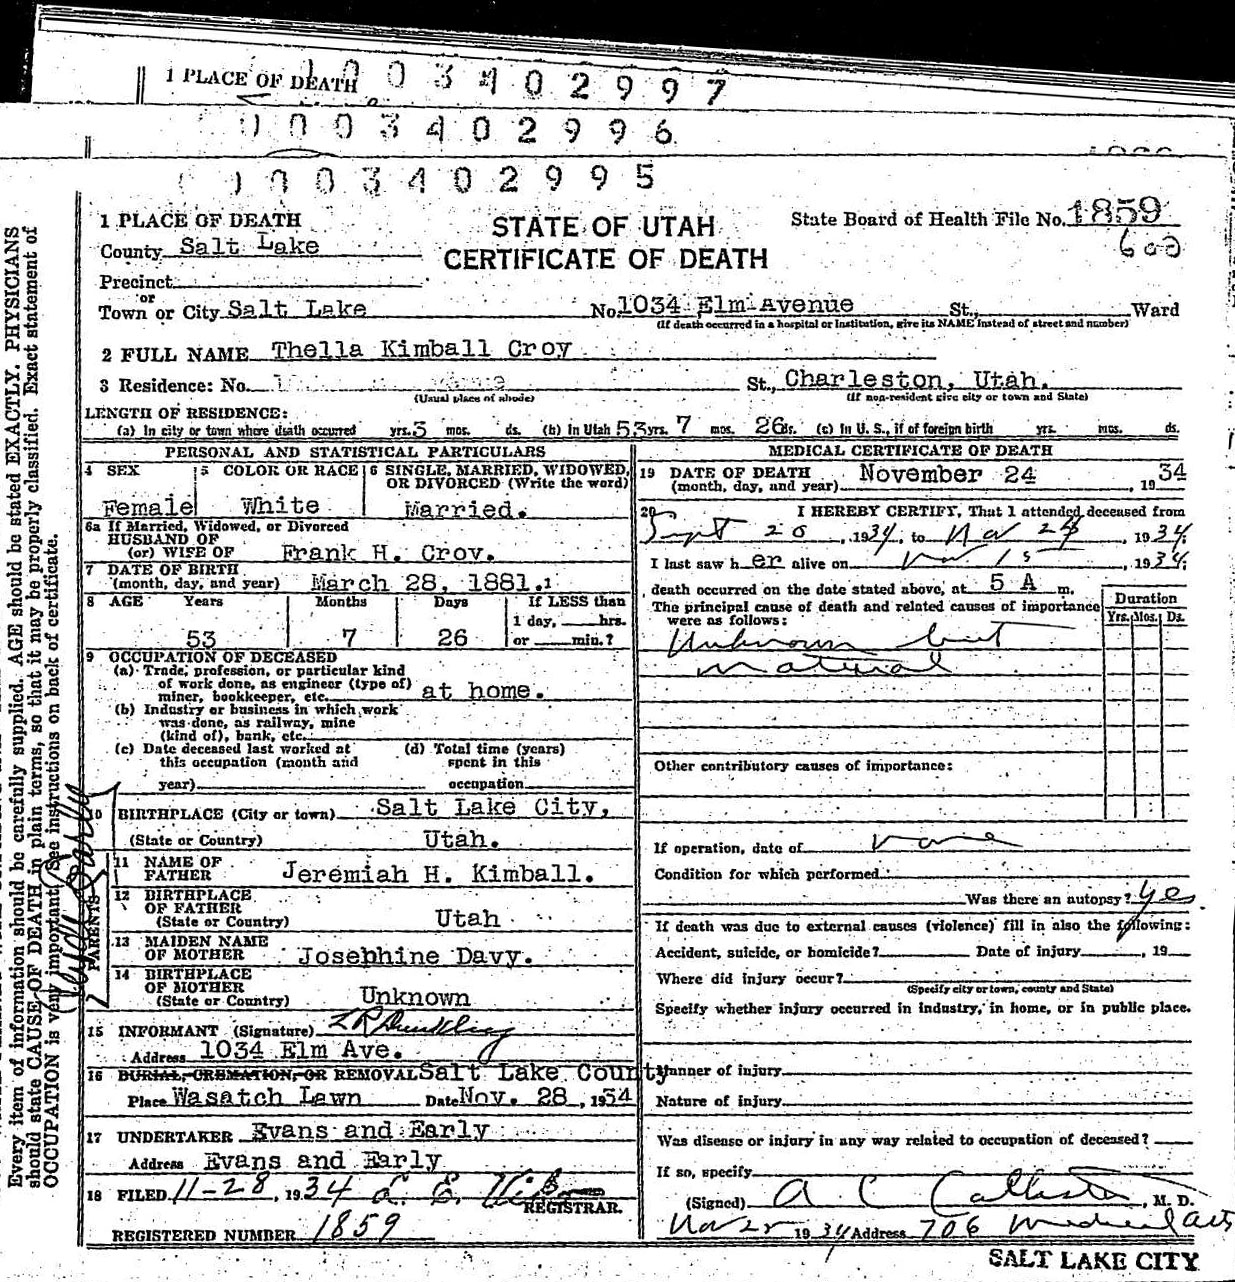 1 PLACE OF DEATH
0003402997
0003402996
0003402995
Every item of information should be carefully supplied. AGE should be stated EXACTLY. PHYSICIANS
should state CAUSE OF DEATH in plain terms, so that it may be properly classified. Exact statement of
OCCUPATION is very important. See instructions on back of certificate.
1 PLACE OF DEATH
STATE OF UTAH
CERTIFICATE OF DEATH
State Board of Health File No. 1859
600
County Salt Lake
Precinct
or
Town or City Salt Lake No. 1034 Elm Avenue St., Ward
(If death occurred in a hospital or institution, give its NAME instead of street and number)
2 FULL NAME Thella Kimball Croy
3 Residence: No. St., Charleston, Utah.
(Usual place of abode) (If non-resident give city or town and State)
LENGTH OF RESIDENCE:
(a) In city or town where death occurred yrs. 3 mos. ds. (b) In Utah 53 yrs. 7 mos. 26 ds. (c) In U. S., if of foreign birth yrs. mos. ds.
PERSONAL AND STATISTICAL PARTICULARS
4 SEX 5 COLOR OR RACE 6 SINGLE, MARRIED, WIDOWED,
OR DIVORCED (Write the word)
Female White Married.
6a If Married, Widowed, or Divorced
HUSBAND OF
(or) WIFE OF Frank H. Croy.
7 DATE OF BIRTH
(month, day, and year) March 28, 1881.
8 AGE Years Months Days If LESS than
1 day, hrs.
53 7 26 or min.?
9 OCCUPATION OF DECEASED
(a) Trade, profession, or particular kind
of work done, as engineer (type of)
miner, bookkeeper, etc. at home.
(b) Industry or business in which work
was done, as railway, mine
(kind of), bank, etc.
(c) Date deceased last worked at (d) Total time (years)
this occupation (month and spent in this
year) occupation
10 BIRTHPLACE (City or town) Salt Lake City,
(State or Country) Utah.
PARENTS
11 NAME OF
FATHER Jeremiah H. Kimball.
12 BIRTHPLACE
OF FATHER
(State or Country) Utah
13 MAIDEN NAME
OF MOTHER Josephine Davy.
14 BIRTHPLACE
OF MOTHER
(State or Country) Unknown
15 INFORMANT (Signature)
Address 1034 Elm Ave.
16 BURIAL, CREMATION, OR REMOVAL Salt Lake County
Place Wasatch Lawn Date Nov. 28, 1934
17 UNDERTAKER Evans and Early
Address Evans and Early
18 FILED 11-28, 1934
REGISTRAR.
REGISTERED NUMBER 1859
MEDICAL CERTIFICATE OF DEATH
19 DATE OF DEATH
(month, day, and year) November 24 1934
20 I HEREBY CERTIFY, That I attended deceased from
Sept 20, 1934, to Nov 24, 1934;
I last saw her alive on Nov 15, 1934;
death occurred on the date stated above, at 5 A m.
The principal cause of death and related causes of importance
were as follows:
Duration
Yrs. Mos. Ds.
Unknown but
natural
Other contributory causes of importance:
If operation, date of none
Condition for which performed
Was there an autopsy? yes
If death was due to external causes (violence) fill in also the following:
Accident, suicide, or homicide? Date of injury, 19
Where did injury occur?
(Specify city or town, county and State)
Specify whether injury occurred in industry, in home, or in public place.
Manner of injury
Nature of injury
Was disease or injury in any way related to occupation of deceased?
If so, specify
(Signed) A C Callister, M. D.
Nov 25 1934 Address 706 Medical Arts
SALT LAKE CITY